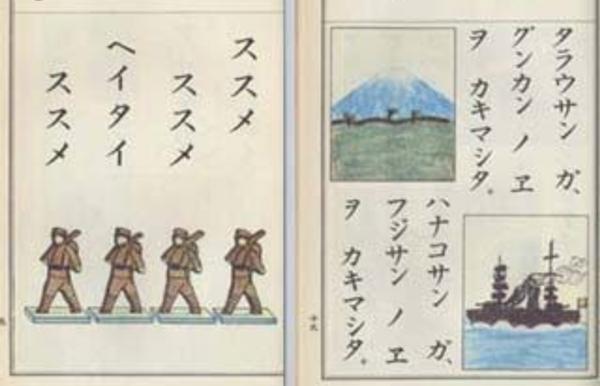 タラウサン ガ、
グンカン ノ ヱ
ヲ カキマシタ。
ハナコサン ガ、
フジサン ノ ヱ
ヲ カキマシタ。
ススメ
ススメ
ヘイタイ
ススメ